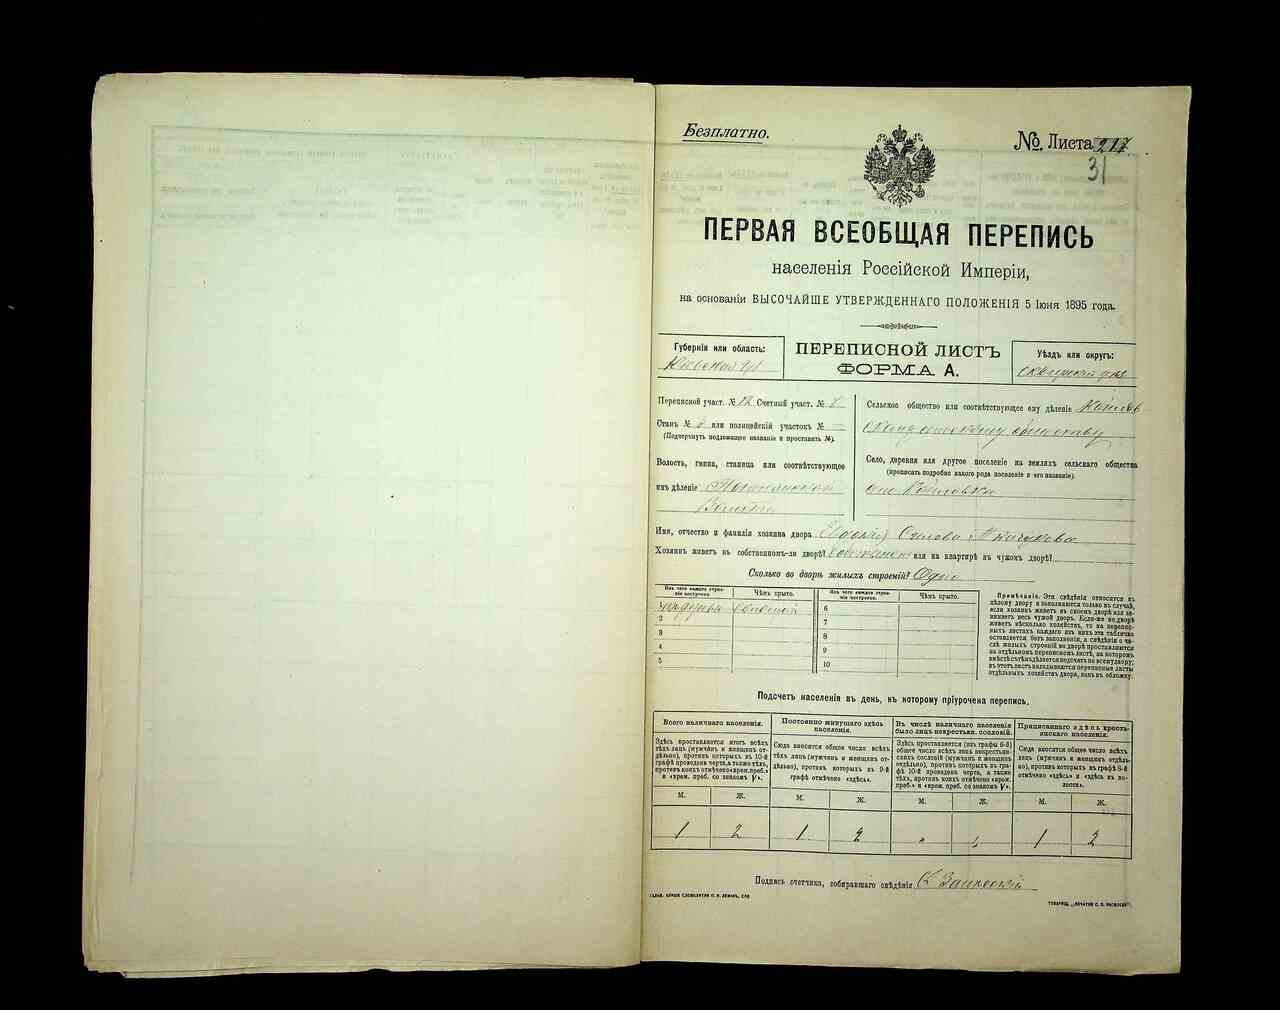 Безплатно.
№. Листа 217.
31
ПЕРВАЯ ВСЕОБЩАЯ ПЕРЕПИСЬ
населенія Россійской Имперіи,
на основаніи ВЫСОЧАЙШЕ УТВЕРЖДЕННАГО ПОЛОЖЕНІЯ 5 Іюня 1895 года.
Губернія или область:
Кіевской
ПЕРЕПИСНОЙ ЛИСТЪ
ФОРМА А.
Уѣздъ или округъ:
Переписной участ. № 12 Счетный участ. №
Станъ № 3 или полицейскій участокъ №
(Подчеркнуть подлежащее названіе и проставить №).
Волость, гмина, станица или соотвѣтствующее
имъ дѣленіе
Сельское общество или соотвѣтствующее ему дѣленіе
обществу
Село, деревня или другое поселеніе на земляхъ сельскаго общества
(прописать подробно какого рода поселеніе и его названіе).
Имя, отчество и фамилія хозяина двора
Хозяинъ живетъ въ собственномъ-ли дворѣ? или на квартирѣ въ чужомъ дворѣ?
Сколько во дворѣ жилыхъ строеній? Одно
Изъ чего каждое строе-
ніе построено.
Чѣмъ крыто.
Изъ чего каждое строе-
ніе построено.
Чѣмъ крыто.
Изъ дерева Соломой
2
3
4
5
6
7
8
9
10
Примѣчаніе. Эти свѣдѣнія относятся къ
дѣлому двору и заполняются только въ случаѣ,
если хозяинъ живетъ въ своемъ дворѣ или за-
нимаетъ весь чужой дворъ. Если-же во дворѣ
живетъ нѣсколько хозяйствъ, то на перепис-
ныхъ листахъ каждаго изъ нихъ эта табличка
оставляется безъ заполненія, а свѣдѣнія о чи-
слѣ жилыхъ строеній во дворѣ проставляются
на отдѣльномъ переписномъ листѣ, на которомъ
вмѣстѣ съ тѣмъ дѣлается подсчетъ по всему двору;
въ этотъ листъ вкладываются переписные листы
отдѣльныхъ хозяйствъ двора, какъ въ обложку.
Подсчетъ населенія въ день, къ которому пріурочена перепись.
Всего наличнаго населенія.
Здѣсь проставляется итогъ всѣхъ
тѣхъ лицъ (мужчинъ и женщинъ от-
дѣльно), противъ которыхъ въ 10-й
графѣ проведена черта, а также тѣхъ,
противъ коихъ отмѣчено «врем. преб.»
и «врем. преб. со знакомъ V».
Постоянно живущаго здѣсь
населенія.
Сюда вносится общее число всѣхъ
тѣхъ лицъ (мужчинъ и женщинъ от-
дѣльно), противъ которыхъ въ 9-й
графѣ отмѣчено «здѣсь».
Въ числѣ наличнаго населенія
было лицъ некрестьян. сословій.
Здѣсь проставляется (изъ графы 6-й)
общее число лицъ некрестьян-
скихъ сословій (мужчинъ и женщинъ
отдѣльно), противъ которыхъ въ гра-
фѣ 10-й проведена черта, а также
тѣхъ, противъ коихъ отмѣчено «врем.
преб.» и «врем. преб. со знакомъ V».
Приписаннаго здѣсь кресть-
янскаго населенія.
Сюда вносится общее число всѣхъ
лицъ (мужчинъ и женщинъ отдѣль-
но), противъ коихъ въ графѣ 8-й
отмѣчено «здѣсь» и «здѣсь въ во-
лости».
М. Ж. М. Ж. М. Ж. М. Ж.
1 2 1 2 „ „ 1 2
Подпись счетчика, собиравшаго свѣдѣнія